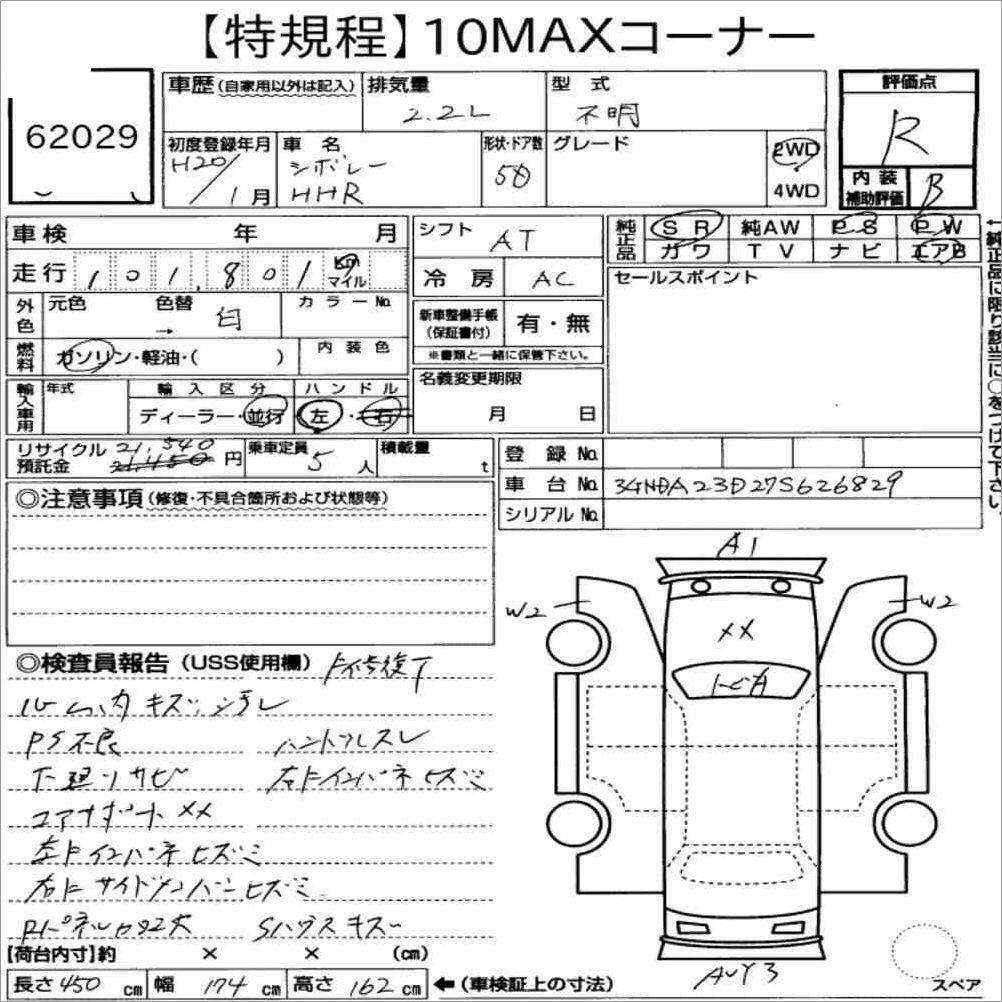 【特規程】10MAXコーナー
62029
車歴 (自家用以外は記入)
排気量
2.2L
型 式
不明
評価点
R
初度登録年月
H20/1月
車 名
シボレー
HHR
形状・ドア数
5D
グレード
2WD
4WD
内装
補助評価
B
車検 年 月
走行 101,801 km マイル
シフト AT
冷房 AC
純正品
SR 純AW PS PW
ガワ TV ナビ エアB
←純正品に限り該当に○をつけて下さい。
外色
元色 色替 → 白
カラーNo.
新車整備手帳
(保証書付)
有・無
※書類と一緒に保管下さい。
セールスポイント
燃料
ガソリン・軽油・( )
内装色
輸入車用
年式
輸入区分
ディーラー・並行
ハンドル
左・右
名義変更期限
月 日
リサイクル
預託金
21,540
21,450 円
乗車定員
5人
積載量
t
登録No.
車台No. 3GNDA23D27S626829
シリアルNo.
◎注意事項 (修復・不具合箇所および状態等)
A1
W2 W2
XX
トビA
◎検査員報告 (USS使用欄)
キズ
PS不良
下廻リサビ
右Fインパネヒズミ
コアサポートXX
左Fインパネヒズミ
右Fサイドメンバーヒズミ
【荷台内寸】約 × × (cm)
長さ 450 cm 幅 174 cm 高さ 162 cm ←(車検証上の寸法)
スペア